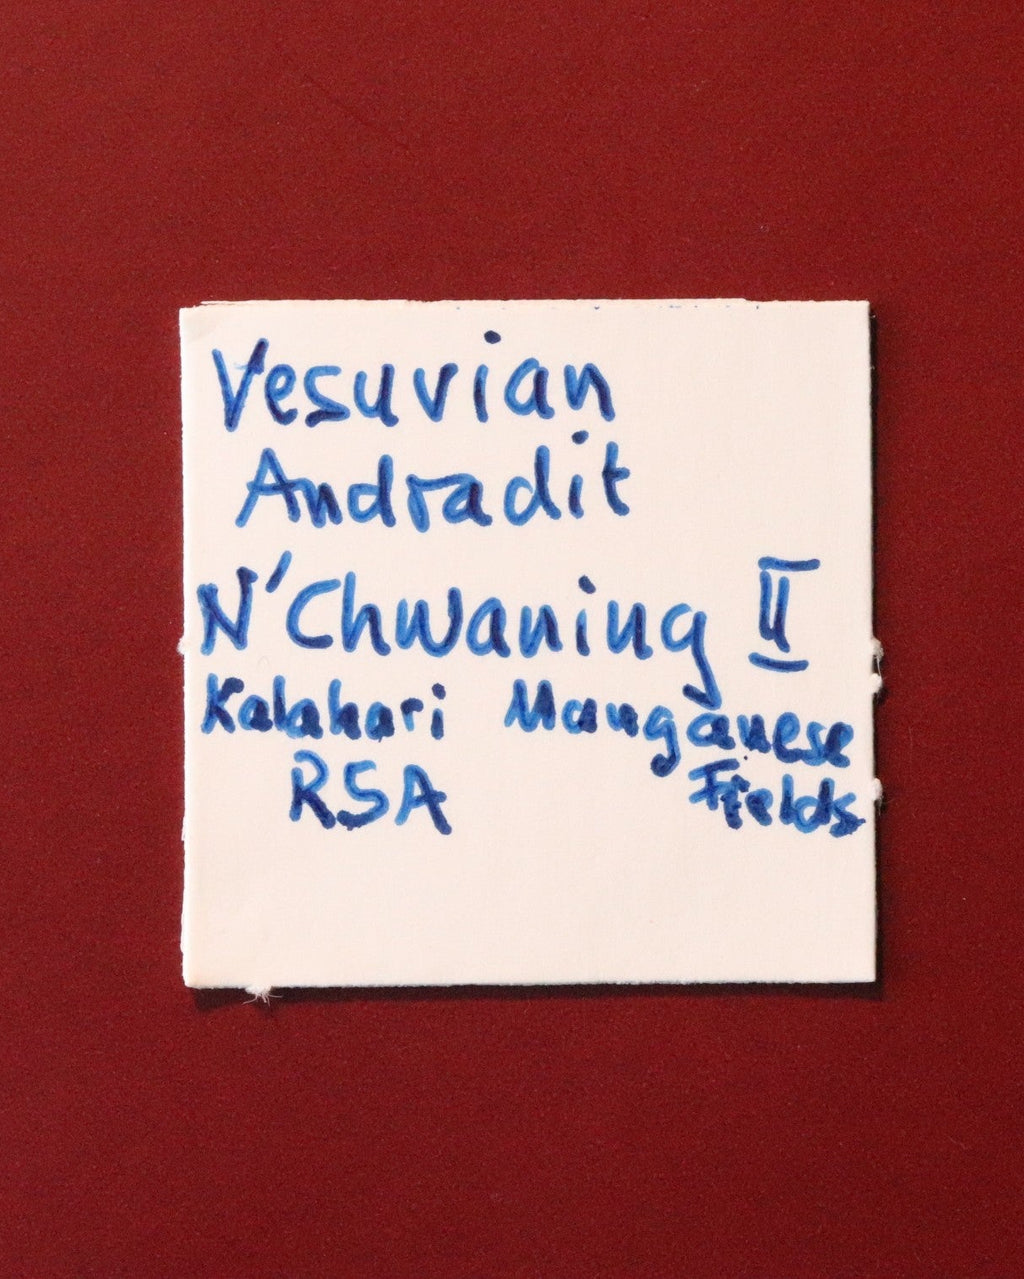 Vesuvian
Andradit
N'Chwaning II
Kalahari Manganese
RSA Fields